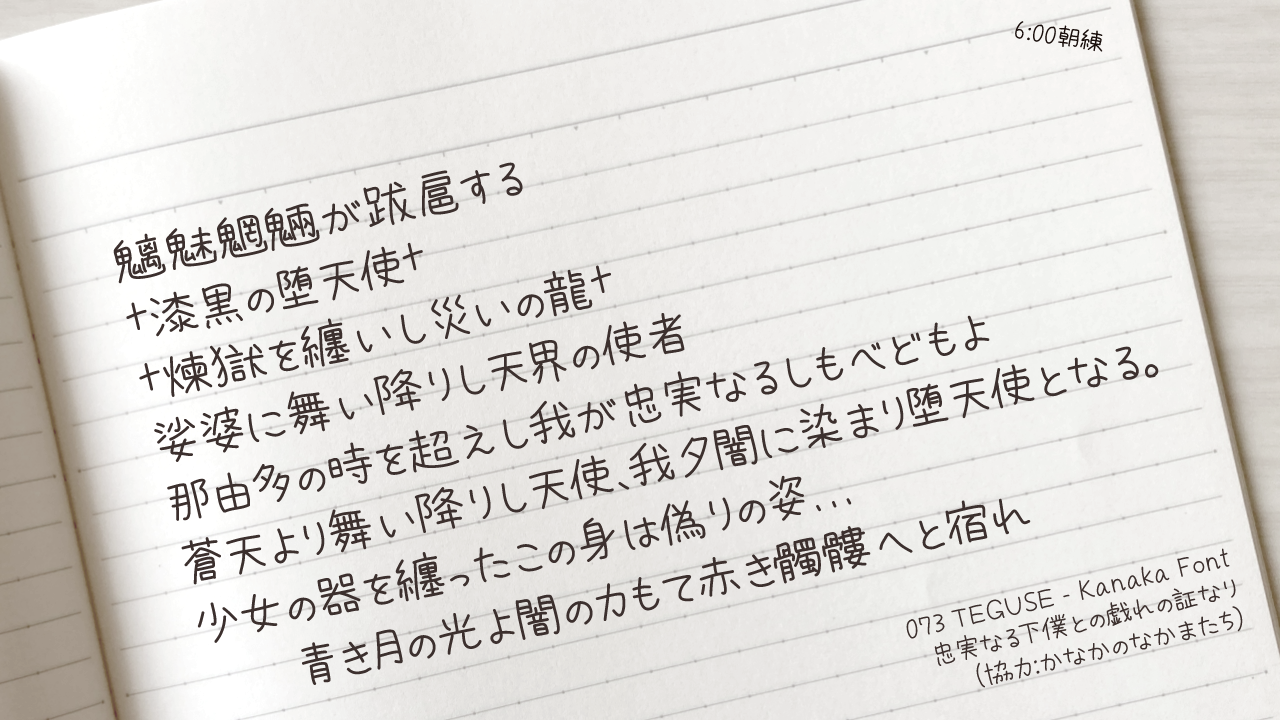 6:00朝練
魑魅魍魎が跋扈する
†漆黒の堕天使†
†煉獄を纏いし災いの龍†
娑婆に舞い降りし天界の使者
那由多の時を超えし我が忠実なるしもべどもよ
蒼天より舞い降りし天使、我夕闇に染まり堕天使となる。
少女の器を纏ったこの身は偽りの姿...
青き月の光よ闇の力もて赤き髑髏へと宿れ
073 TEGUSE - Kanaka Font
忠実なる下僕との戯れの証なり
(協力:かなかのなかまたち)